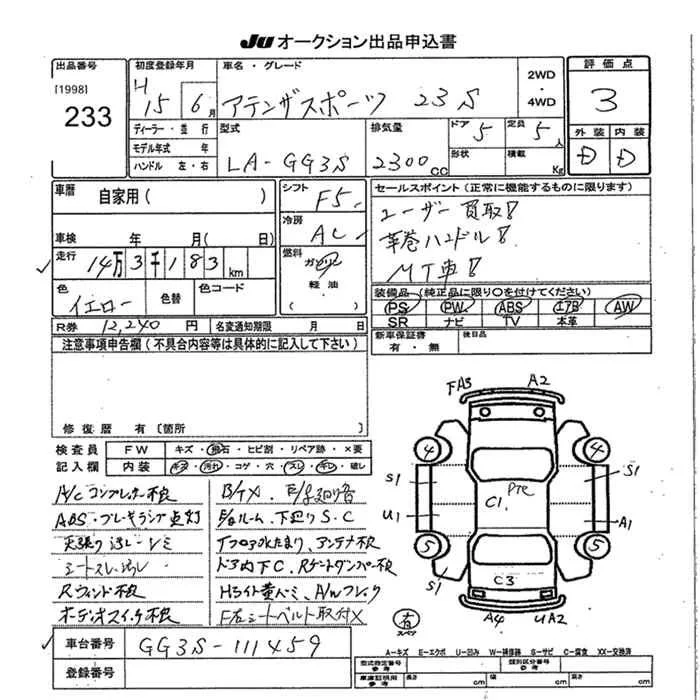 JU オークション出品申込書
出品番号
[1998]
233
初度登録年月
H 15年 6月
車名・グレード
アテンザスポーツ 23S
2WD
・
4WD
評価点
3
ディーラー・並行
モデル年式 年
ハンドル 左・右
型式
LA-GG3S
排気量
2300cc
ドア 5
形状
定員 5人
積載 Kg
外装 内装
D D
車歴
自家用( )
車検 年 月( 日)
走行
14万3千183km
シフト
F5
冷房
AC
燃料
ガソリン
・
軽油
( )
セールスポイント(正常に機能するものに限ります)
ユーザー買取!
革巻ハンドル!
MT車!
色
イエロー
色替
色コード
装備品(純正品に限り○を付けてください)
PS PW ABS エアB AW
SR ナビ TV 本革
R券 12,240円
名変通知期限 月 日
新車保証書
有・無
後日品
注意事項申告欄(不具合内容等は具体的に記入して下さい)
修復歴 有〔箇所 〕
検査員
記入欄
FW キズ・飛石・ヒビ割・リペア跡・×要
内装 キズ・汚れ・コゲ・穴・スレ・キレ・破レ
A/Cコンプレッサー不良
ABS・ブレーキランプ点灯
天張り汚レ・シミ
シートスレ・汚レ
Rウィンド不良
オーディオスイッチ不良
下廻りS・C
フロアOKたまり、アンテナ不良
ドア内下C、Rゲートダンパー不良
Hライト黄バミ、A/Wフレック
F左シートベルト取付X
FA3 A2
4 4
S1 S1
PTC
C1
U1 A1
5 5
S1
C3
A4 UA2
有
スペア
A=キズ E=エクボ U=凹み W=補修跡 S=サビ C=腐食 XX=交換済
車台番号 GG3S-111459
登録番号
型式指定番号 類別区分番号
車庫証明用 長さ cm 幅 cm 高さ cm